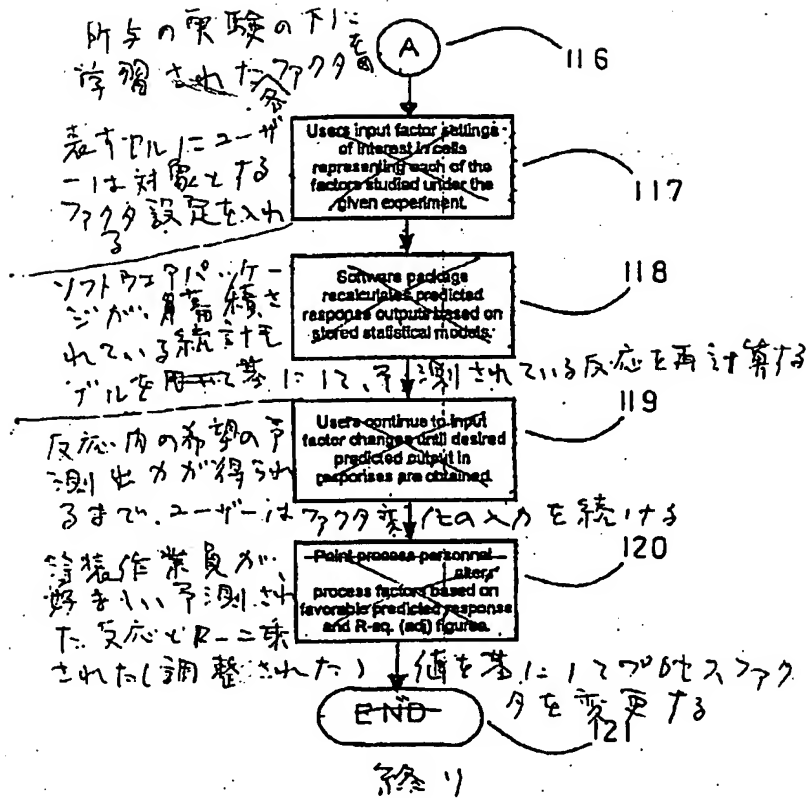 所与の実験の下に
学習されたファクタを
各
A
116
表すセルにユーザ
ーは対象とする
ファクタ設定を入れ
る
Users input factor settings
of interest in cells
representing each of the
factors studied under the
given experiment.
117
ソフトウエアパッケー
ジが 蓄積さ
れている統計モ
デルを 基にして、予測されている反応を再計算する
Software package
recalculates predicted
response outputs based on
stored statistical models.
118
反応内の希望の予
測出力が得られ
るまで、ユーザーはファクタ変化の入力を続ける
Users continue to input
factor changes until desired
predicted output in
responses are obtained.
119
塗装作業員が
好ましい予測され
た反応とR-二乗
された(調整された) 値を基にしてプロセスファク
タを変更する
Paint process personnel
alters
process factors based on
favorable predicted response
and R-sq. (adj) figures.
120
END
121
終り